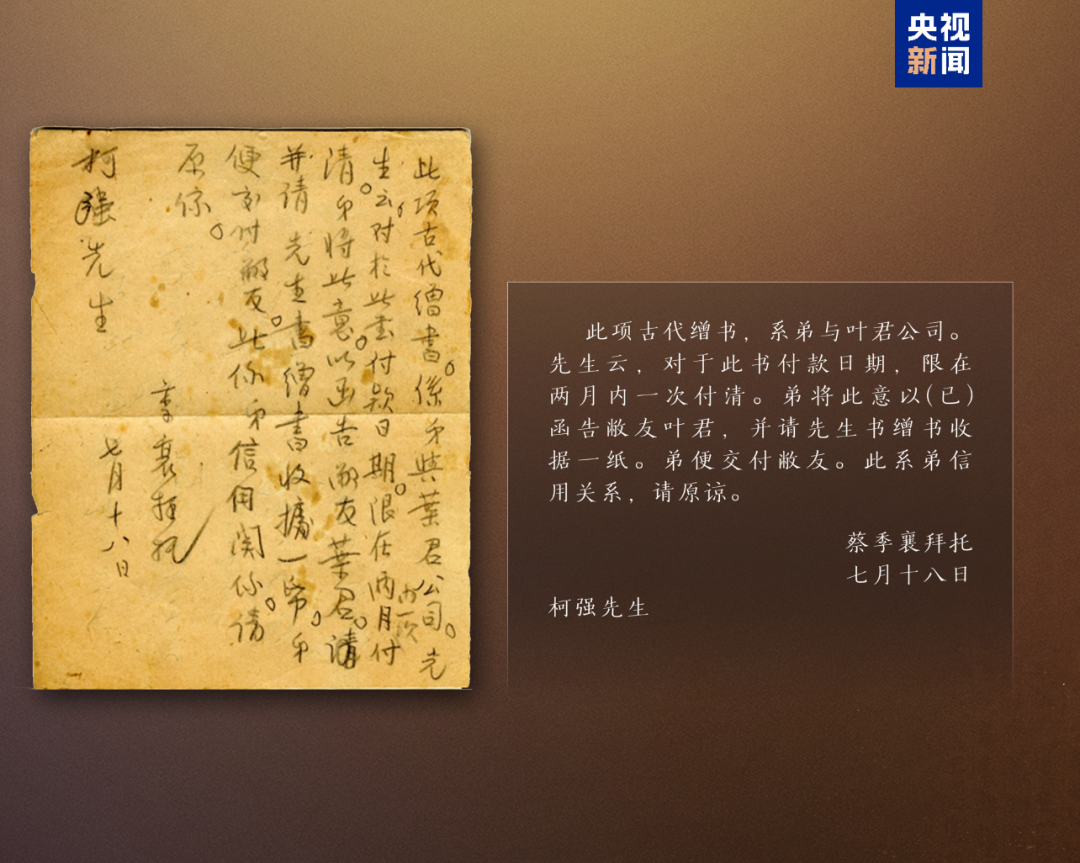 央视
新闻
此项古代缯書。係弟與葉君公司。先
生云,对於此書付款日期。限在两月付
内一次
清。弟将此意以函告敝友葉君。请
并请先生書缯書收據一帋。弟
便交付敝友。此係弟信用関係。请
原谅。
季襄拜托
七月十八日
柯强先生
此项古代缯书,系弟与叶君公司。
先生云,对于此书付款日期,限在
两月内一次付清。弟将此意以(已)
函告敝友叶君,并请先生书缯书收
据一纸。弟便交付敝友。此系弟信
用关系,请原谅。
蔡季襄拜托
七月十八日
柯强先生